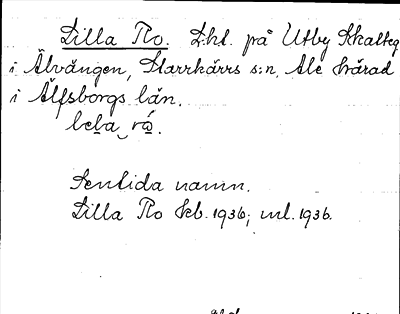 Lilla Ro. Lht. på Utby Skatteg
i Älvängen, Starrkärrs s:n, Ale härad
i Älfsborgs län.
lɩla ró.
Sentida namn.
Lilla Ro kb. 1936; ml. 1936.